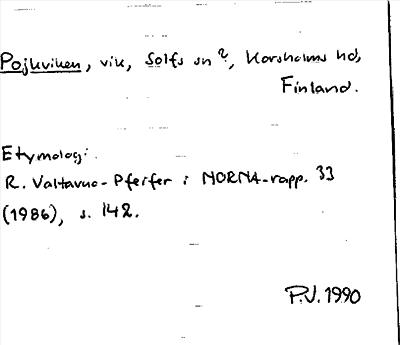 Pojkviken, vik, Solfs sn ?, Korsholms hd,
Finland.
Etymologi:
R. Valtavuo-Pfeifer i NORNA-rapp. 33
(1986), s. 142.
P.V. 1990